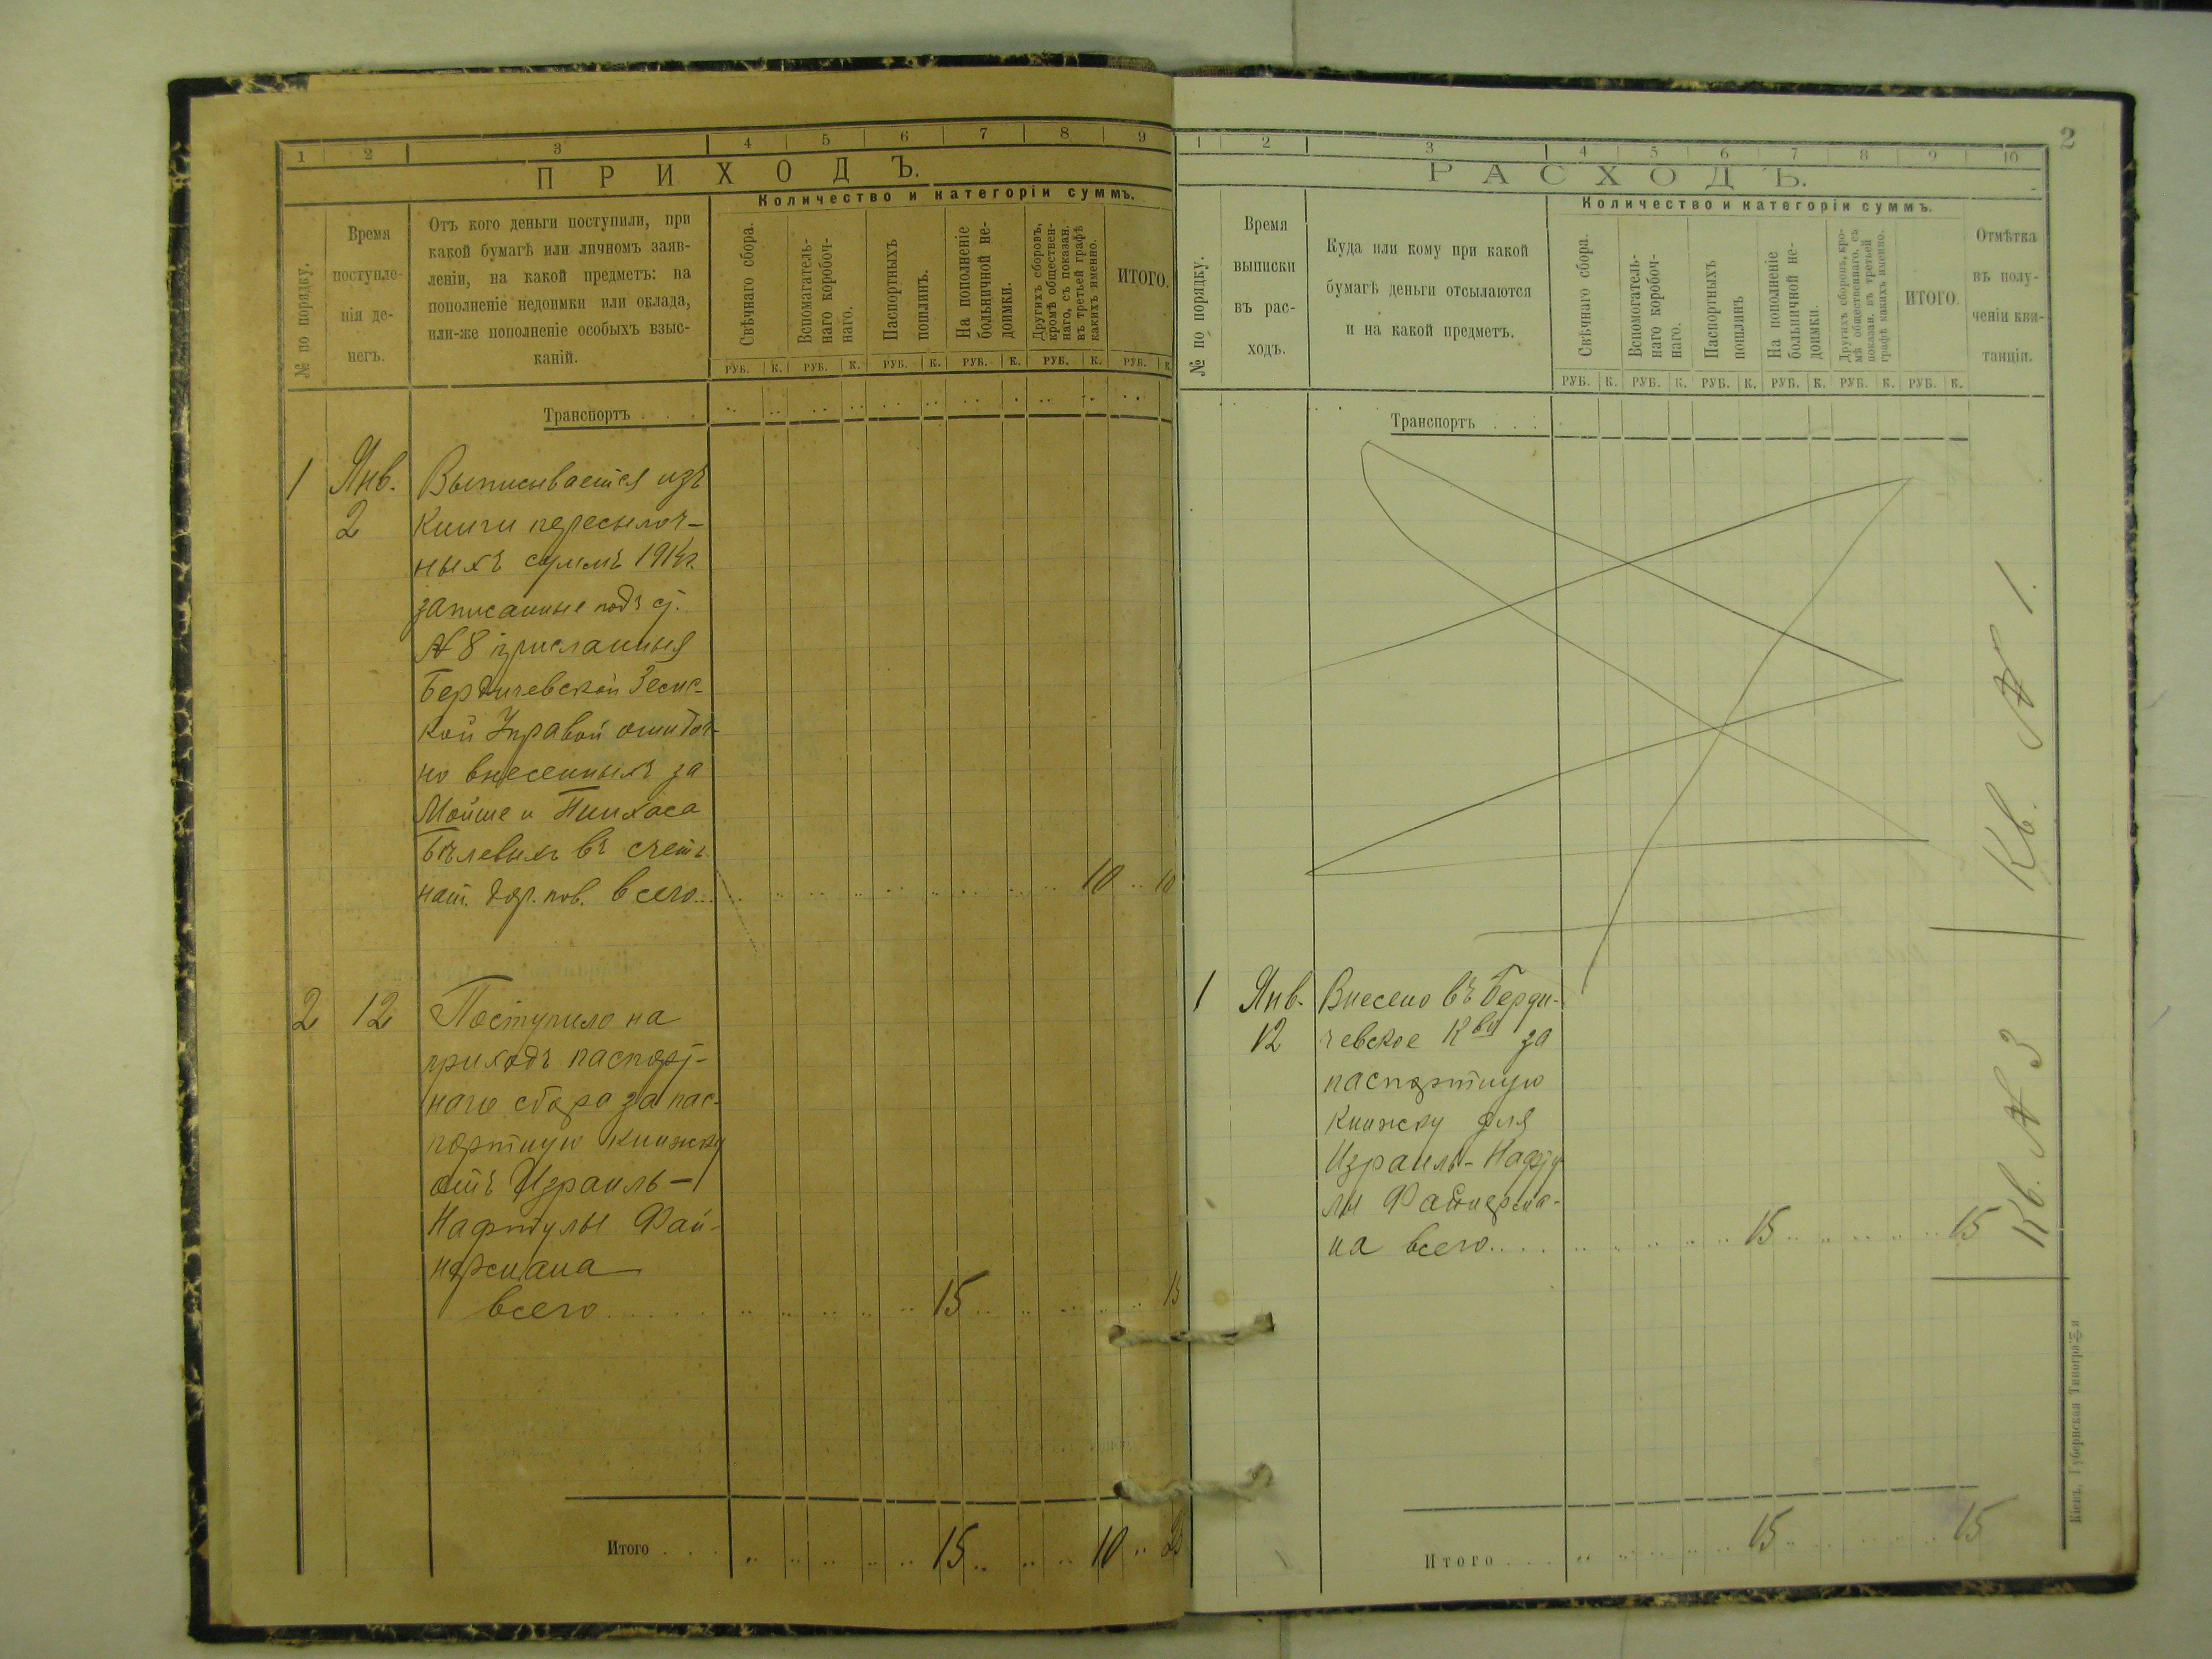 1 2 3 4 5 6 7 8 9
ПРИХОДЪ.
Количество и категоріи суммъ.
№ по порядку.
Время
поступле-
нія де-
негъ.
Отъ кого деньги поступили, при
какой бумагѣ или личномъ заяв-
леніи, на какой предметъ: на
пополненіе недоимки или оклада,
или-же пополненіе особыхъ взыс-
каній.
Свѣчнаго сбора.
Вспомагатель-
наго коробоч-
наго.
Паспортныхъ
пошлинъ.
На пополненіе
больничной не-
доимки.
Другихъ сборовъ,
кромѣ обществен-
наго, съ показан.
въ третьей графѣ
какихъ именно.
ИТОГО.
РУБ. К. РУБ. К. РУБ. К. РУБ. К. РУБ. К. РУБ. К.
Транспортъ . . .
1 Янв. Выписывается изъ
2 книги пересылоч-
ныхъ суммъ 1914г.
записанные подъ ст.
№ 8 присланныя
Бердичевской
кой Управой ошибоч-
но внесенныхъ за
Мойше и Пинхаса
въ счетъ
всего... 10 10
2 12 Поступило на
приходъ паспорт-
наго сбора за пас-
портную книжку
отъ Израиль-
Нафтулы Фай-
нермана
всего..... 15 15
Итого . . . 15 10 25
2
1 2 3 4 5 6 7 8 9 10
РАСХОДЪ.
Количество и категоріи суммъ.
№ по порядку.
Время
выписки
въ рас-
ходъ.
Куда или кому при какой
бумагѣ деньги отсылаются
и на какой предметъ.
Свѣчнаго сбора.
Вспомогатель-
наго коробоч-
наго.
Паспортныхъ
пошлинъ
На пополненіе
больничной не-
доимки.
Другихъ сборовъ, кро-
мѣ общественнаго, съ
показан. въ третьей
графѣ какихъ именно.
ИТОГО.
Отмѣтка
въ полу-
ченіи кви-
танціи.
РУБ. К. РУБ. К. РУБ. К. РУБ. К. РУБ. К. РУБ. К.
Транспортъ . . .
Кв. № 1.
1 Янв. Внесено въ Берди-
12 чевское К-во за
паспортную
книжку для
Израиль-Нафту-
лы Файнерма-
на всего.... 15 15
Кв. № 3
Итого . . . 15 15
Кіевъ, Губернская Типографія